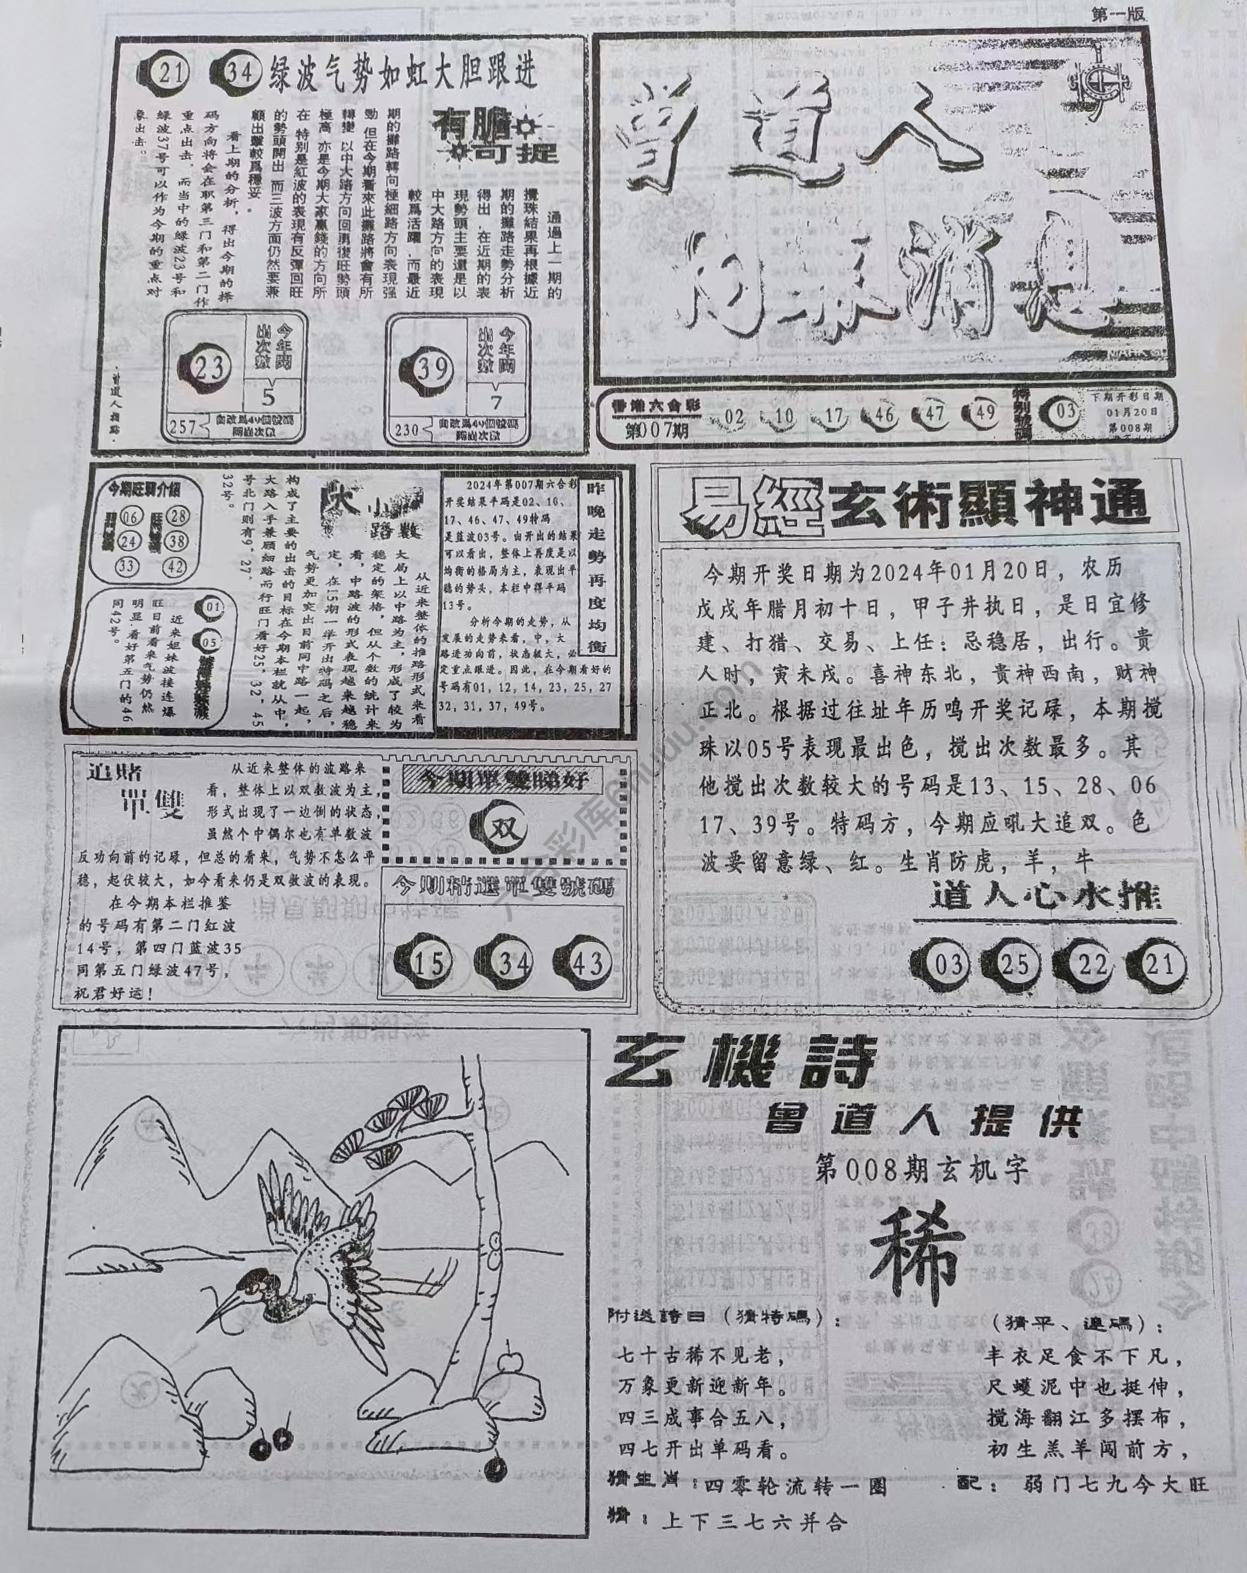 第一版
21 34 绿波气势如虹大胆跟进
有膽
可捉
通過上一期的
攪珠結果再根據近
期的攤路走勢分析
得出,在近期的表
現勢頭主要還是以
中大路方向的表現
較爲活躍,而最近
期的攤路轉向極細路方向表現强
勁,但在今期看來此攤路將會有所
轉變,以中大路方向回勇復旺勢頭
極高,亦是今期大家贏錢的方向所
在,特别是紅波的表現有反彈回旺
的勢頭開出,而三波方面仍然要兼
顧出擊較爲穩妥。
看上期的分析,得出今期的择
码方向将会在职第三门和第二门作
重点出击,而当中的绿波23号和
绿波37号可以作为今期的重点对
象出击。
曾道人攤路
23
今年開
出次數
5
257
自改爲49個號碼
開出次數
39
今年開
出次數
7
230
自改爲49個號碼
開出次數
曾道人
内幕消息
香港六合彩
第007期
02 10 17 46 47 49
特别號碼
03
下期开彩日期
01月20日
第008期
今期旺碼介紹
16 28
24 38
33 42
01
05
近来姐妹波接连爆
旺,目前看来气势仍然
明显,看好第五门的46
同42号。
大小路數
从近来整体的推路形式来看
大局上以中路为主,形成了较为
稳定的架格,但从个数的统计来
看,中路波的形式表现越来越稳
定,在15期一举开出特码之后,
气势更加突出目前同中路一起,
构成了主要的出击的目标在今期本栏就从中,
大路入手兼顾细路而行旺门看好25,32,45
号北门则有9,27,
32号。
昨晚走勢再度均衡
2024年第007期六合彩
开奖结果平码是02、10、
17、46、47、49特码
是蓝波03号。由开出的结果
可以看出,整体上再度是以
均衡的格局为主,表现出平
稳的势头,本栏中得平码
13号。
分析今期的走势,从
发展的走势来看,中,大
路迸功向前,状态极大,必
定重点跟进。因此,在今期看好的
号码有01,12,14,23,25,27
32,31,37,49号。
易經玄術顯神通
今期开奖日期为2024年01月20日,农历
戊戌年腊月初十日,甲子井执日,是日宜修
建、打猎、交易、上任:忌稳居,出行。贵
人时,寅未戌。喜神东北,贵神西南,财神
正北。根据过往址年历鸣开奖记碌,本期搅
珠以05号表现最出色,搅出次数最多。其
他搅出次数较大的号码是13、15、28、06
17、39号。特码方,今期应吼大追双。色
波要留意绿、红。生肖防虎,羊,牛
道人心水推
03 25 22 21
追賭
單雙
从近来整体的波路来
看,整体上以双数波为主,
形式出现了一边倒的状态,
虽然个中偶尔也有单数波
反功向前的记碌,但总的看来,气势不怎么平
稳,起伏较大,如今看来仍是双数波的表现。
在今期本栏推鉴
的号码有第二门红波
14号,第四门蓝波35
同第五门绿波47号,
祝君好运!
今期單雙睇好
双
今期精選單雙號碼
15 34 43
玄機詩
曾道人提供
第008期玄机字
稀
附送詩曰(猜特碼):
七十古稀不见老,
万象更新迎新年。
四三成事合五八,
四七开出单码看。
猜生肖:四零轮流转一圈
猜:上下三七六并合
(猜平、連碼):
丰衣足食不下凡,
尺蠖泥中也挺伸,
搅海翻江多摆布,
初生羔羊闯前方,
配:弱门七九今大旺